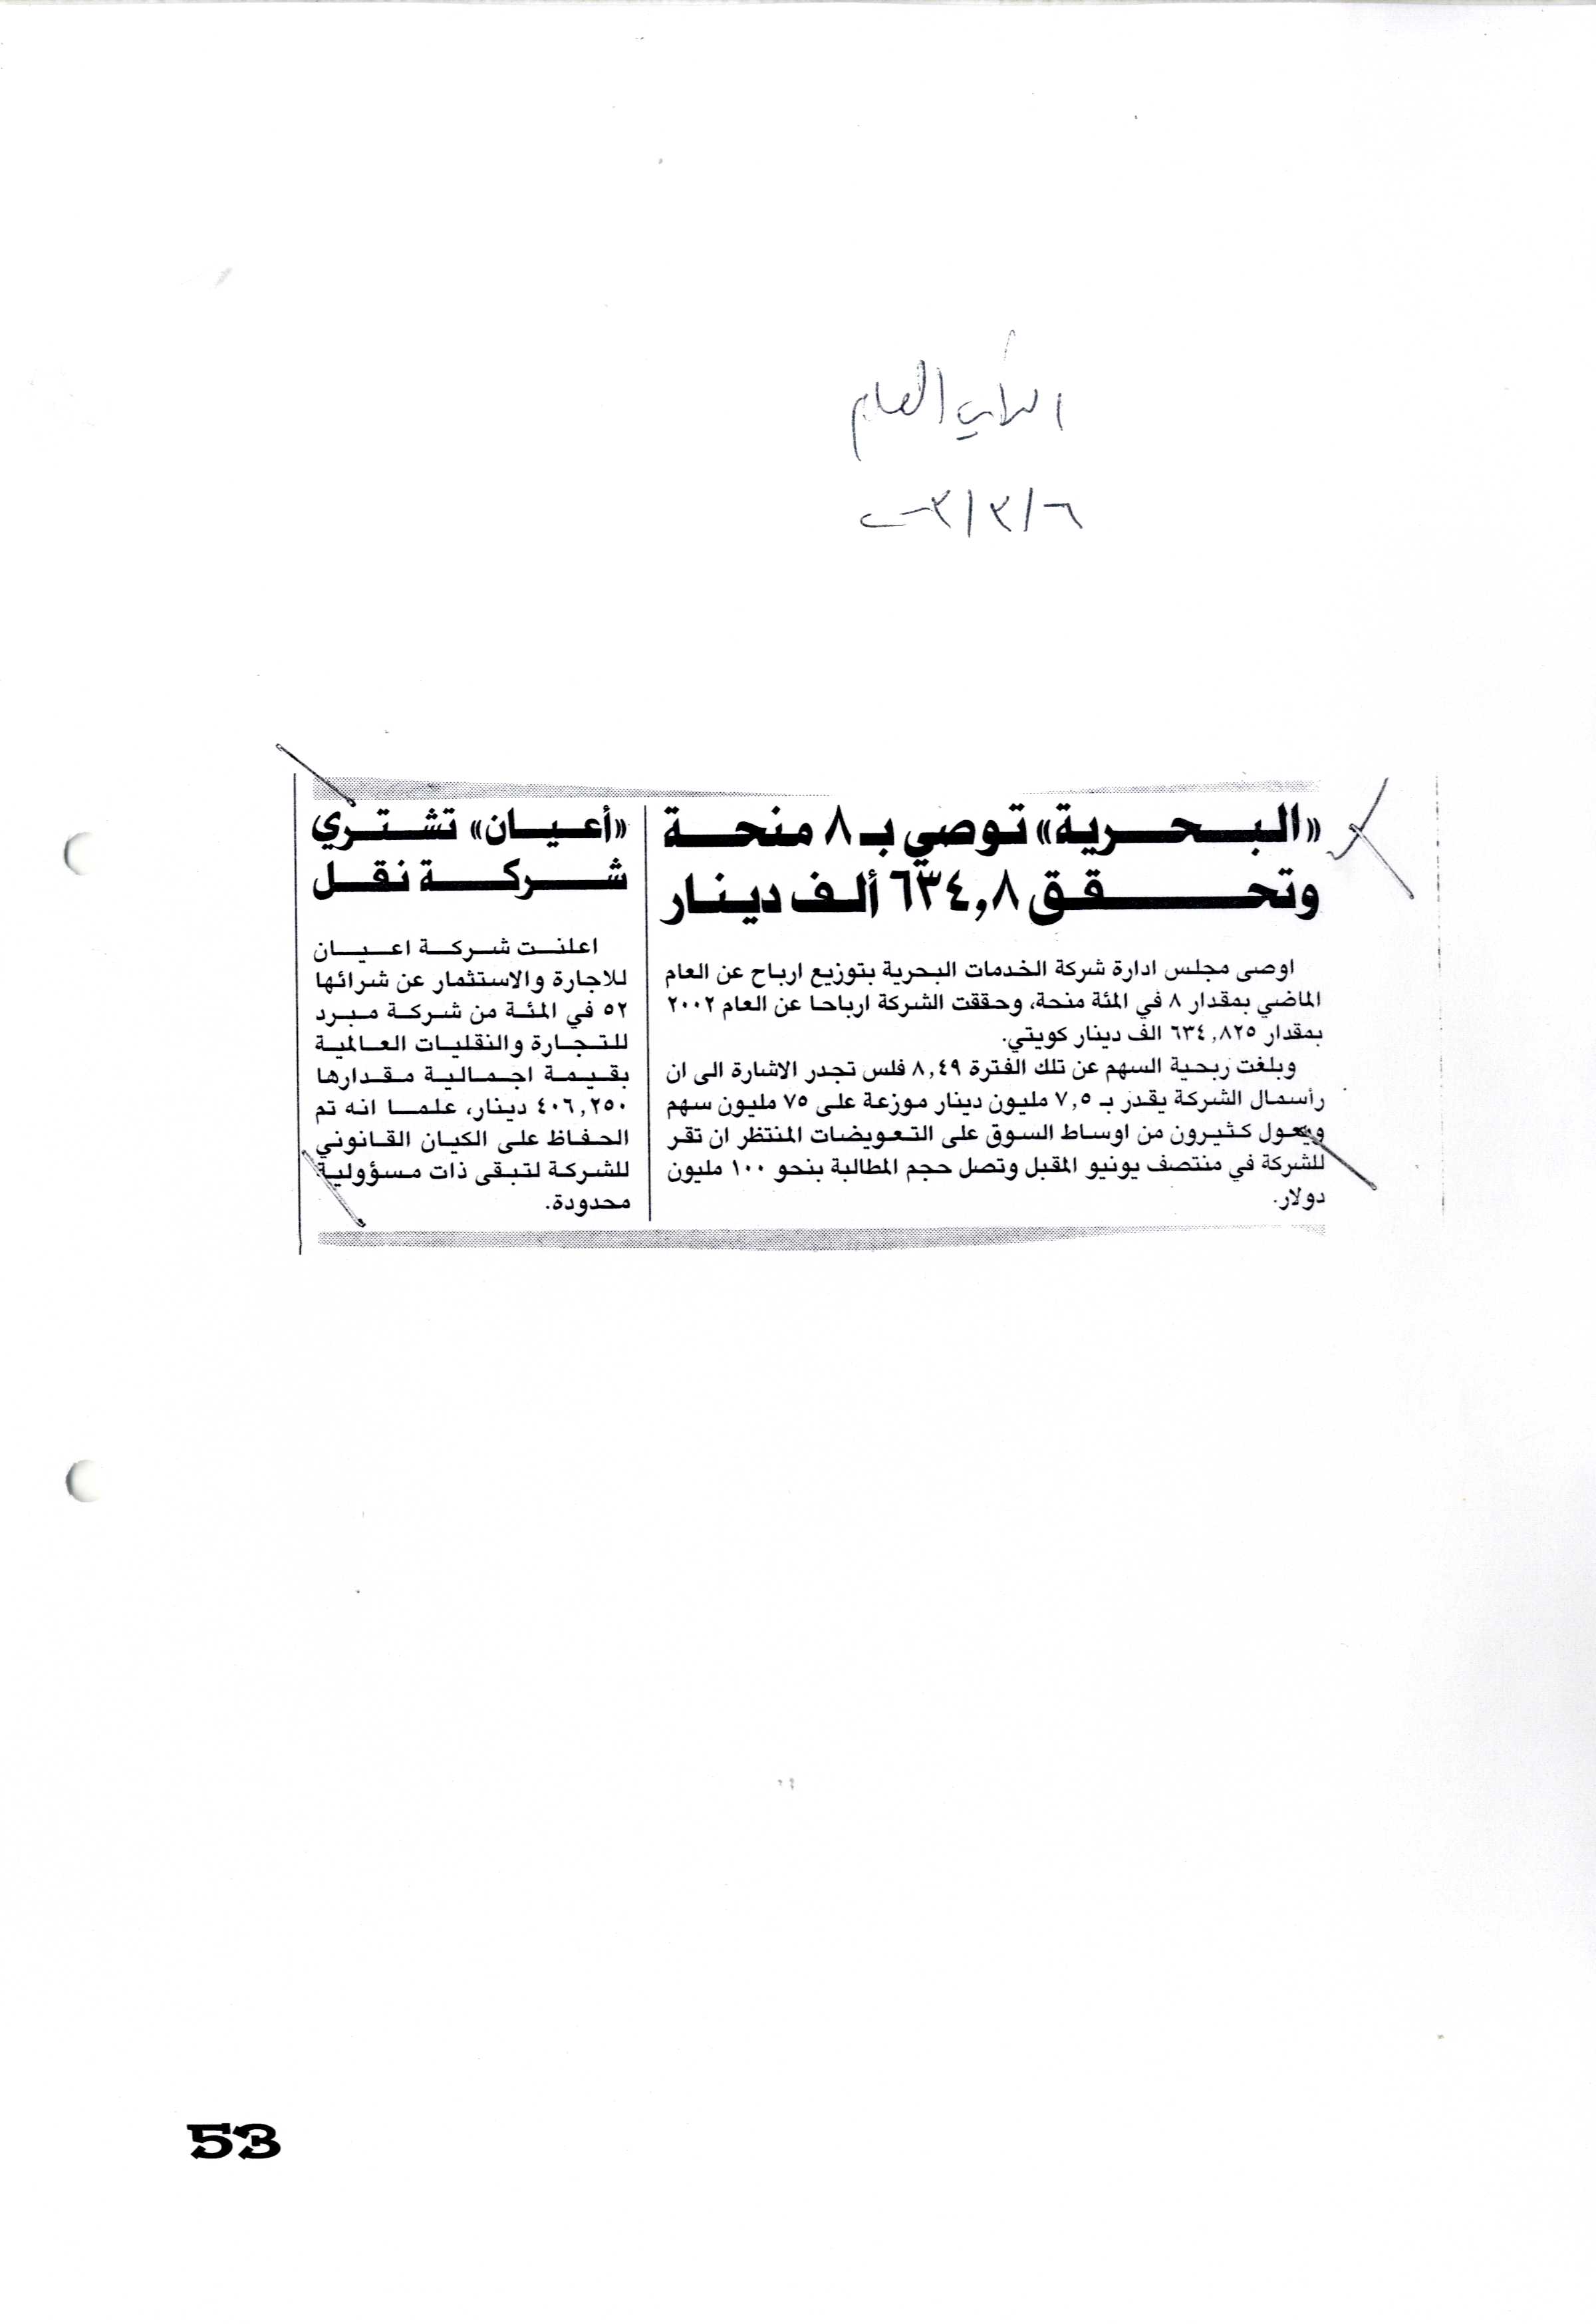 الرأي العام
٢٠٠٣/٣/٦
«البحرية» توصي بـ ٨ منحة
وتحقق ٦٣٤,٨ ألف دينار
اوصى مجلس ادارة شركة الخدمات البحرية بتوزيع ارباح عن العام
الماضي بمقدار ٨ في المئة منحة، وحققت الشركة ارباحا عن العام ٢٠٠٢
بمقدار ٦٣٤,٨٢٥ الف دينار كويتي.
وبلغت ربحية السهم عن تلك الفترة ٨,٤٩ فلس تجدر الاشارة الى ان
رأسمال الشركة يقدر بـ ٧,٥ مليون دينار موزعة على ٧٥ مليون سهم
ويعول كثيرون من اوساط السوق على التعويضات المنتظر ان تقر
للشركة في منتصف يونيو المقبل وتصل حجم المطالبة بنحو ١٠٠ مليون
دولار.
«أعيان» تشتري
شركة نقل
اعلنت شركة اعيان
للاجارة والاستثمار عن شرائها
٥٢ في المئة من شركة مبرد
للتجارة والنقليات العالمية
بقيمة اجمالية مقدارها
٤٠٦,٢٥٠ دينار، علما انه تم
الحفاظ على الكيان القانوني
للشركة لتبقى ذات مسؤولية
محدودة.
53